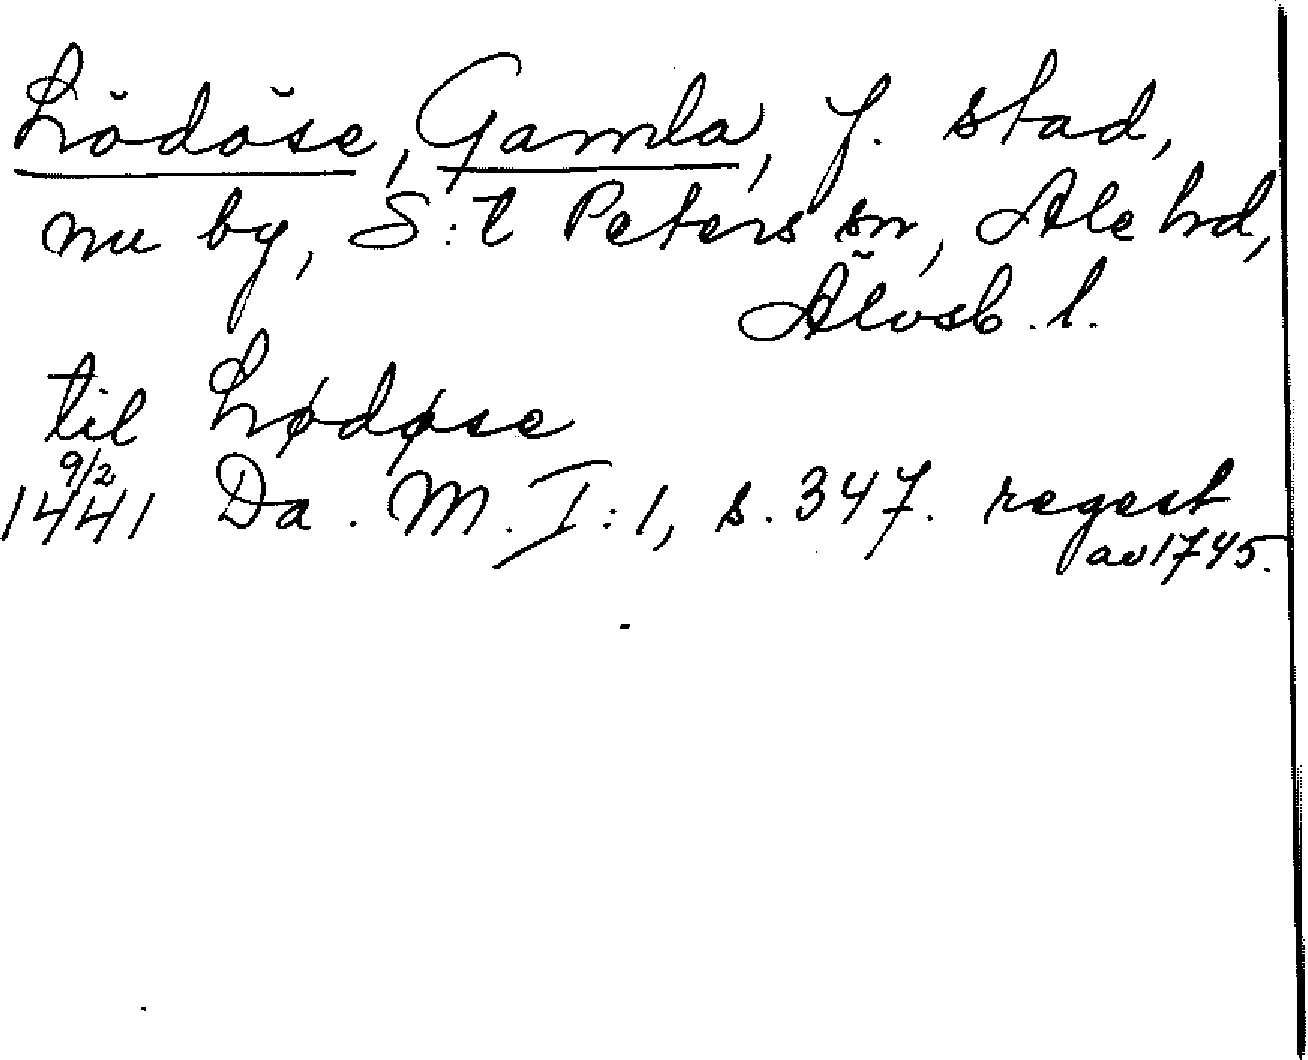 Lödöse, Gamla, f. stad,
nu by, S:t Peters sn, Ale hd,
Älvsb. l.
til Lødøse
1441 9/2 Da. M. I:1, s. 347. regest
av 1745.